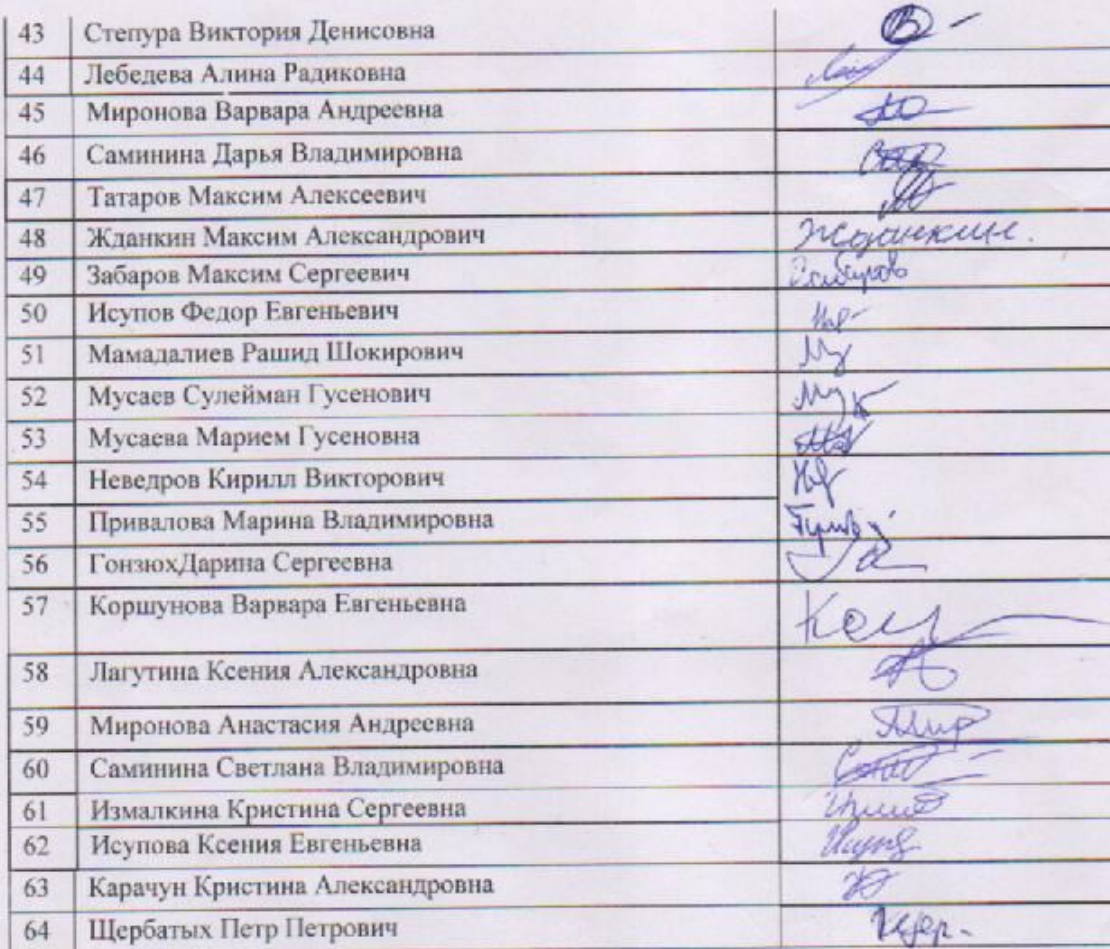 43 Степура Виктория Денисовна
44 Лебедева Алина Радиковна
45 Миронова Варвара Андреевна
46 Саминина Дарья Владимировна
47 Татаров Максим Алексеевич
48 Жданкин Максим Александрович Жданкин.
49 Забаров Максим Сергеевич Забаров
50 Исупов Федор Евгеньевич
51 Мамадалиев Рашид Шокирович
52 Мусаев Сулейман Гусенович
53 Мусаева Марием Гусеновна
54 Неведров Кирилл Викторович
55 Привалова Марина Владимировна
56 ГонзюхДарина Сергеевна
57 Коршунова Варвара Евгеньевна
58 Лагутина Ксения Александровна
59 Миронова Анастасия Андреевна
60 Саминина Светлана Владимировна
61 Измалкина Кристина Сергеевна
62 Исупова Ксения Евгеньевна
63 Карачун Кристина Александровна
64 Щербатых Петр Петрович